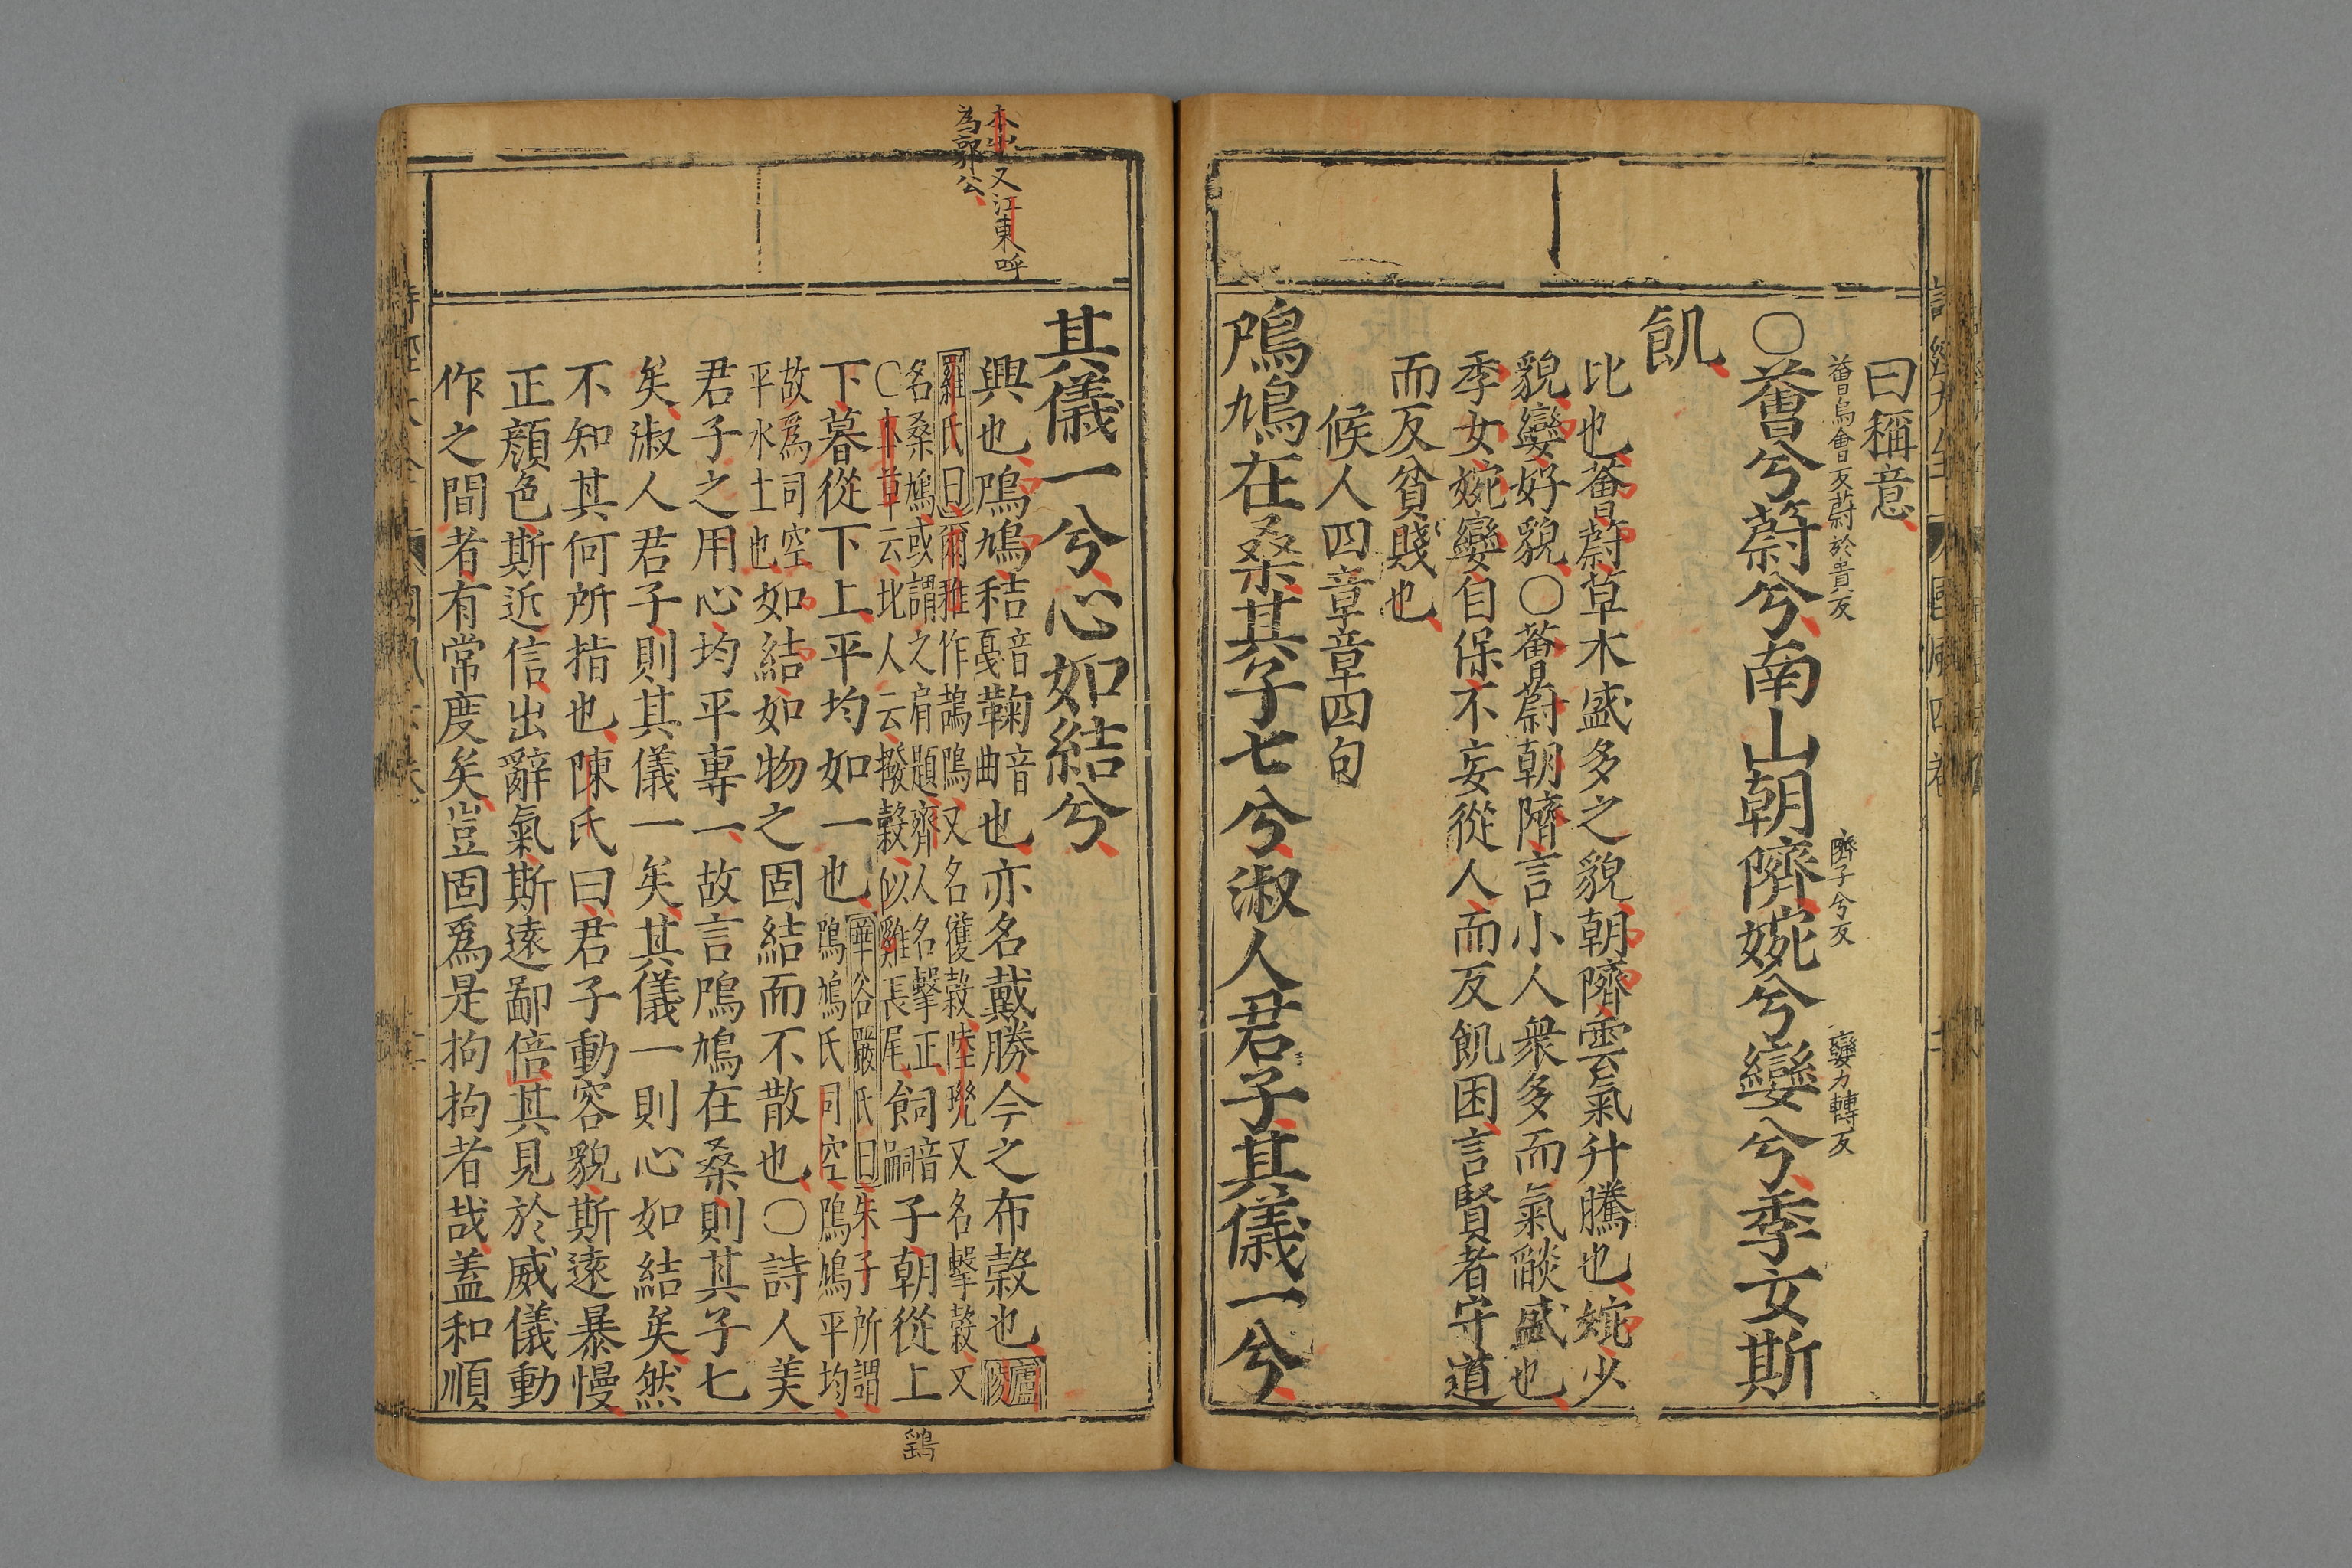 曰稱意
薈烏會反蔚於貴反
隮子兮反
孌力轉反
○薈兮蔚兮南山朝隮婉兮孌兮季女斯
飢
比也薈蔚草木盛多之貌朝隮雲氣升騰也婉少
貌孌好貌○薈蔚朝隮言小人衆多而氣燄盛也
季女婉孌自保不妄從人而反飢困言賢者守道
而反貧賤也
候人四章章四句
鳲鳩在桑其子七兮淑人君子其儀一兮
其儀一兮心如結兮
又江東呼
為郭公
興也鳲鳩秸音戞鞠音曲也亦名戴勝今之布穀也廬陵
羅氏曰爾雅作鴶鵴又名穫穀陸璣又名擊穀又
名桑鳩或謂之肩題齊人名擊正
○本草云北人云撥穀似雞長尾飼音嗣子朝從上
下暮從下上平均如一也華谷嚴氏曰朱子所謂
鳲鳩氏司空鳲鳩平均
故爲司空
平水土也如結如物之固結而不散也○詩人美
君子之用心均平專一故言鳲鳩在桑則其子七
矣淑人君子則其儀一矣其儀一則心如結矣然
不知其何所指也陳氏曰君子動容貌斯遠暴慢
正顔色斯近信出辭氣斯遠鄙倍其見於威儀動
作之間者有常度矣豈固爲是拘拘者哉蓋和順